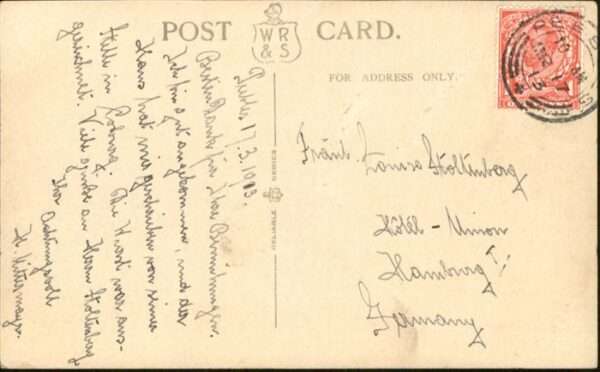 POST CARD.
WR
&S
FOR ADDRESS ONLY.
RELIABLE SERIES
Peebles 17.3.1913.
Besten Dank für Ihre Bemühungen.
Ich bin gut angekommen, und der
Hans hat mir geschrieben von seiner
Stelle in Coburg. Die Wurst war aus-
gezeichnet. Viele Grüße an Herrn Stoltenberg
Ihr Achtungsvoll
H. Kittsmayer.
Fräul. Louise Stoltenberg
Hôtel - Union
Hamburg
Germany
PEEB